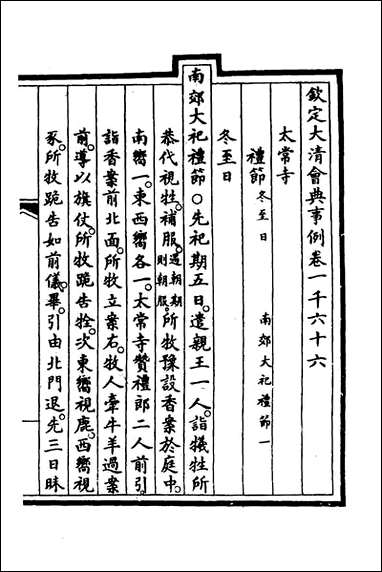 欽定大清會典事例卷一千六十六
太常寺
禮節冬至日　南郊大祀禮節一
冬至日
南郊大祀禮節○先祀期五日。遣親王一人。詣犧牲所
恭代視牲。補服。遇朝期則朝服。所牧豫設香案於庭中。
南嚮一。東西嚮各一。太常寺贊禮郎二人前引。
詣香案前北面。所牧立案右。牧人牽牛羊過案
前。導以旗仗。所牧跪告牷。次東嚮視鹿。西嚮視
豕。所牧跪告如前儀。畢。引由北門退。先三日昧